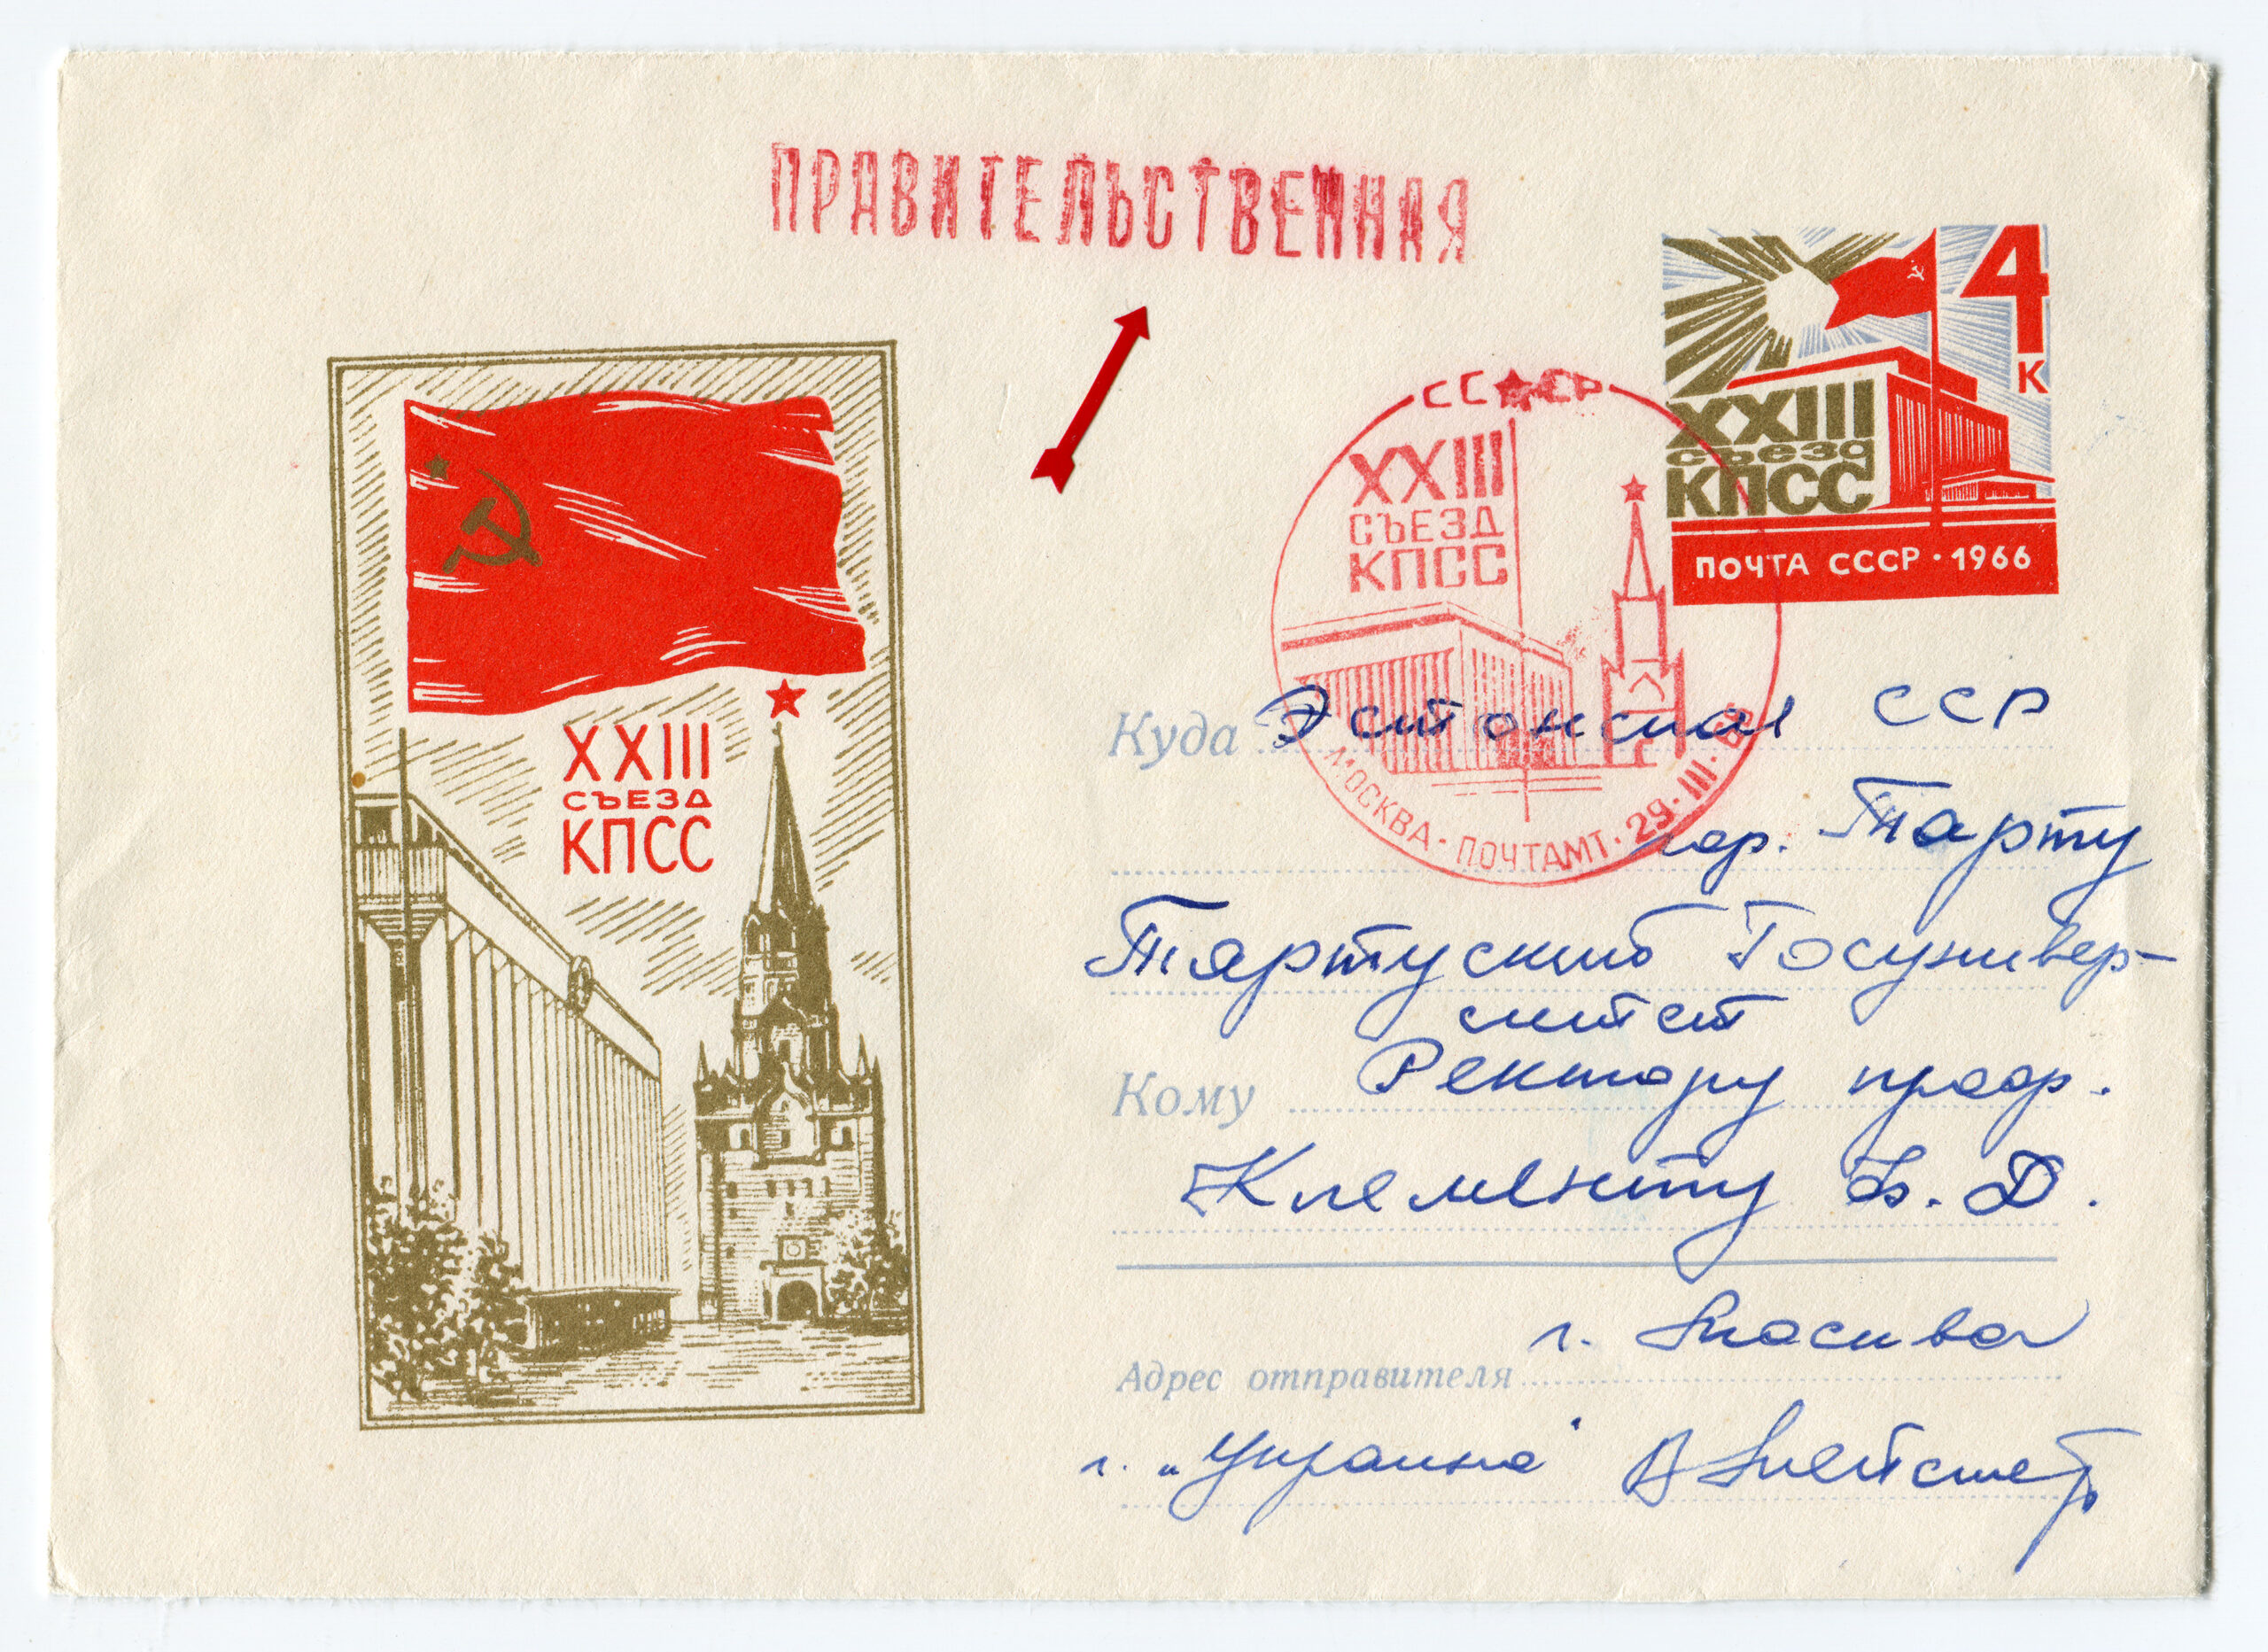 ПРАВИТЕЛЬСТВЕННАЯ
4
К
XXIII
съезд
КПСС
ПОЧТА СССР · 1966
СССР
XXIII
СЪЕЗД
КПСС
МОСКВА · ПОЧТАМТ · 29 · III · 66
XXIII
СЪЕЗД
КПСС
Куда Эстонская ССР
гор. Тарту
Тартуский Госунивер-
ситет
Кому Ректору проф.
Клементу Ф. Д.
г. Москва
Адрес отправителя
г. „Украина“